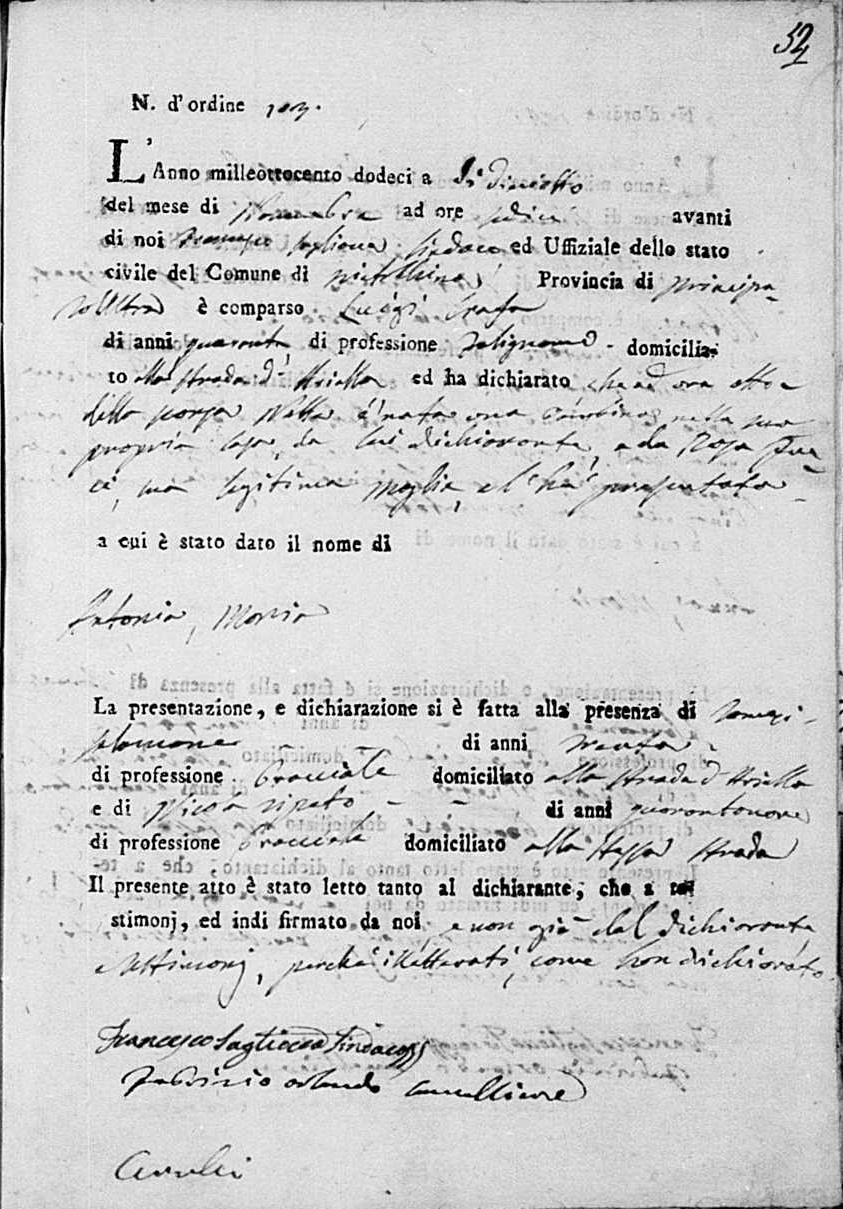 52
N. d'ordine 103.
L'Anno milleottocento dodeci a dì diciotto
del mese di Novembre ad ore sedici avanti
di noi Francesco Sagliocca Sindaco ed Uffiziale dello stato
civile del Comune di Provincia di Principa-
to Ultra è comparso Luigi
di anni quaranta di professione Falegname domicilia-
to alla strada d' Ariella ed ha dichiarato che ad ore otto
della scorsa Notte è nata una bambina nella sua
propria casa, da lui dichiarante, e da Rosa
sua legitima moglie, e l'hà presentata
a cui è stato dato il nome di
Antonia, Maria
La presentazione, e dichiarazione si è fatta alla presenza di
di anni trenta
di professione Bracciale domiciliato alla strada d' Ariella
e di di anni quarantanove
di professione Bracciale domiciliato alla stessa strada
Il presente atto è stato letto tanto al dichiarante, che a te-
stimonj, ed indi firmato da noi e non già dal dichiarante
e testimonj, perchè illetterati, come han dichiarato.
Francesco Sagliocca Sindaco
Fabrizio Orlando Cancelliere